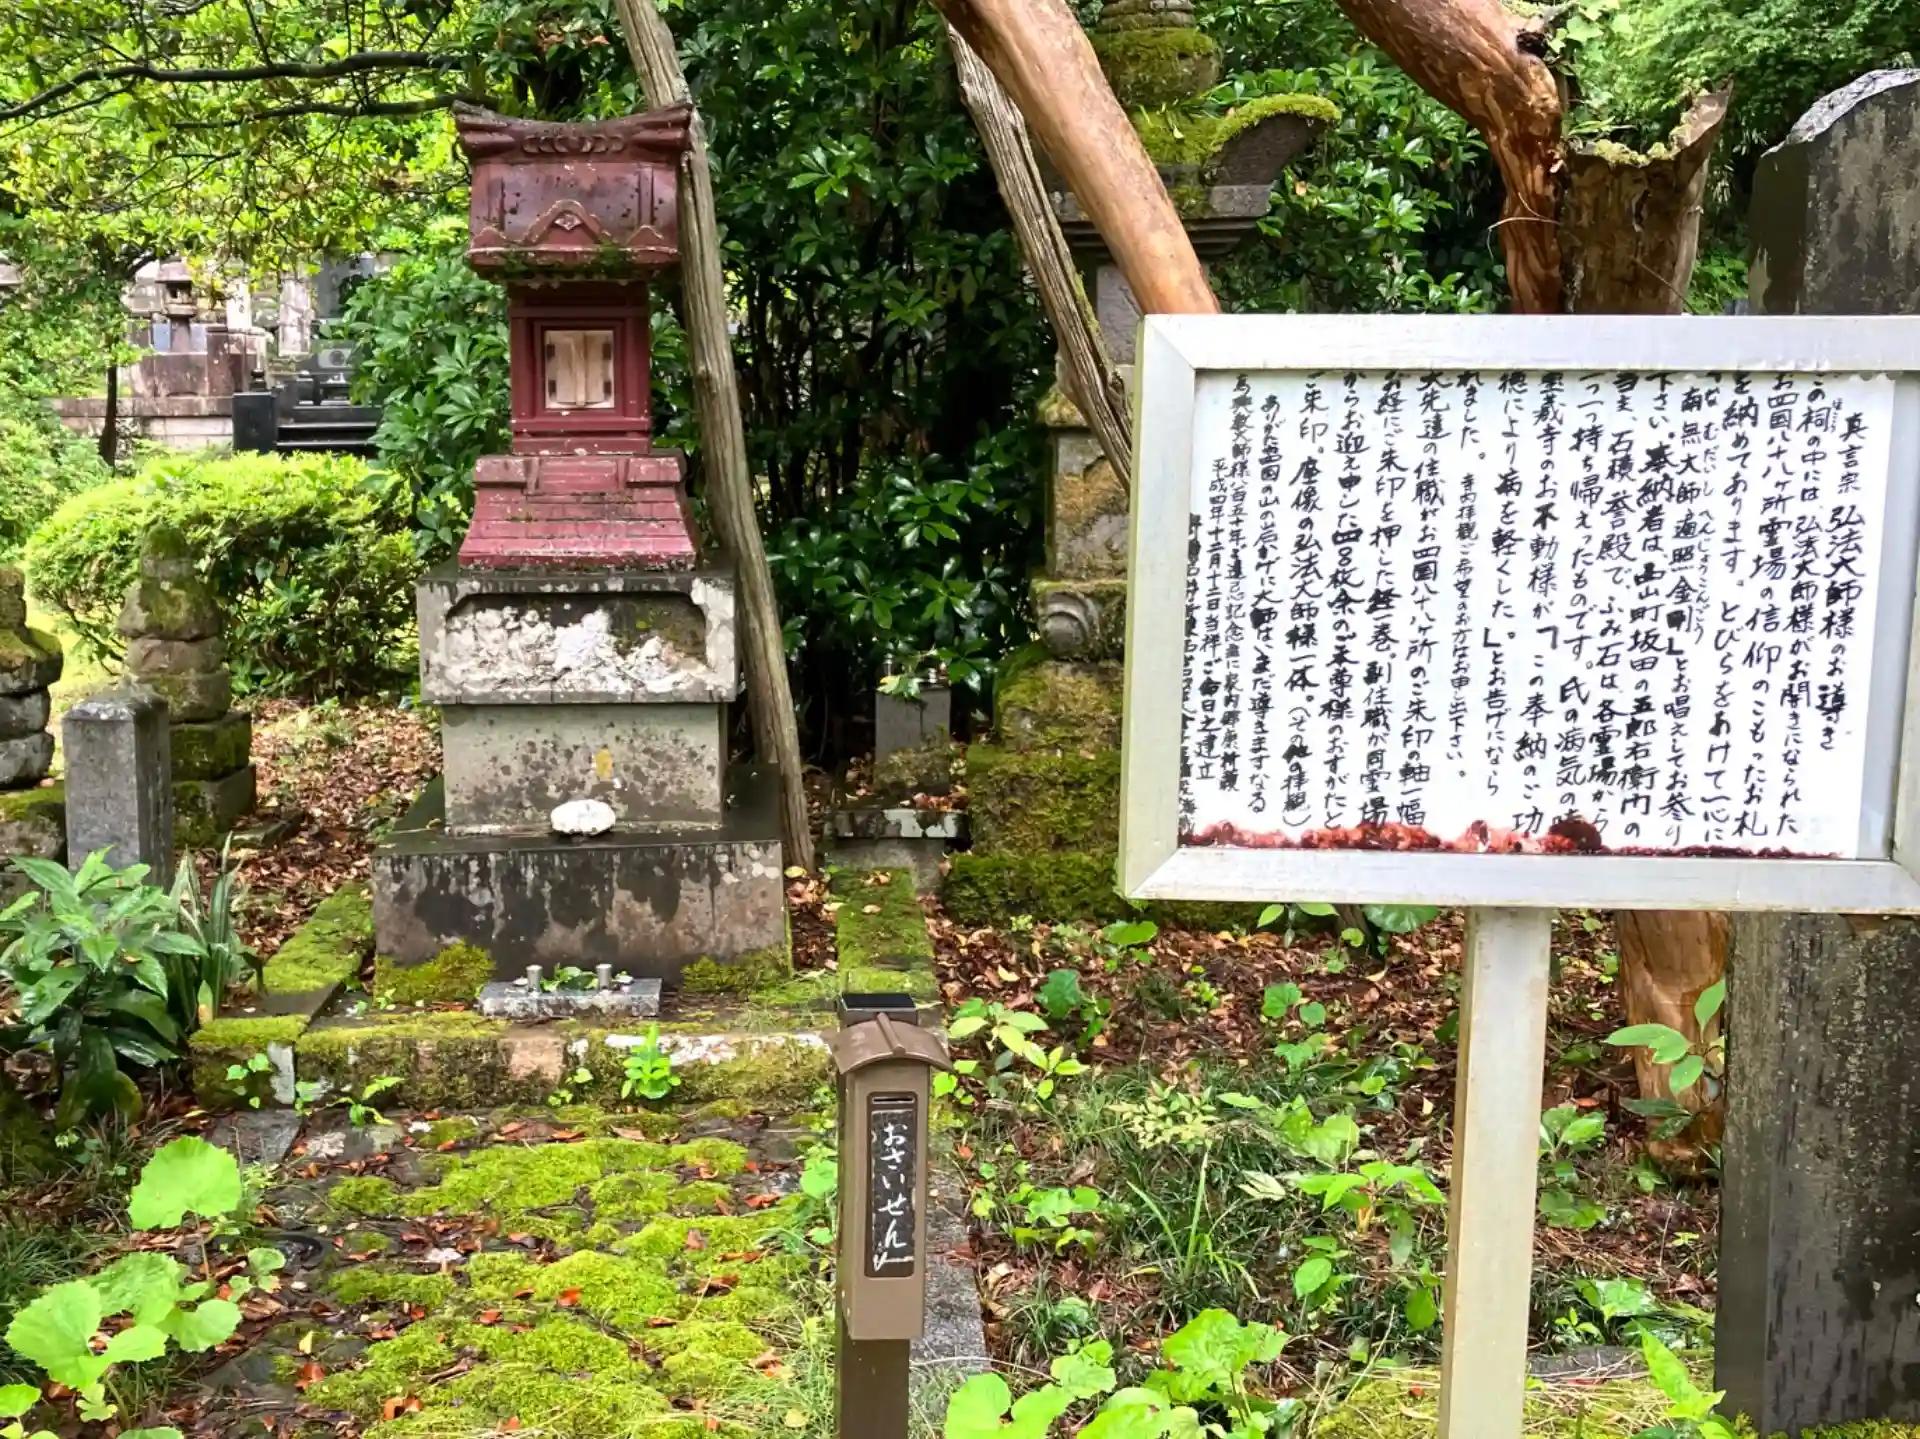 真言宗 弘法大師様のお導き
この祠の中には、弘法大師様がお開きになられた
ほこら
お四国八十八ヶ所霊場の信仰のこもったお札
を納めてあります。とびらをあけて一心に
なむだいしへんじょうこんごう
「南無大師遍照金剛」とお唱えしてお参り
下さい。奉納者は、畄山町坂田の五郎右衛門の
当主、石積誉殿で、ふみ石は、各霊場から
一つ一つ持ち帰えったものです。氏の病気の時
寺のお不動様が「この奉納のご功
徳により病を軽くした。」とお告げになら
れました。
寺内拝観ご希望のお方はお申し出下さい。
大先達の住職がお四国八十八ヶ所のご朱印の軸一幅
お経にご朱印を押した経一巻。副住職が同霊場
からお迎え申した四百枚余のご本尊様のおすがたと
ご朱印。座像の弘法大師様一体。(その他の拝観)
あがた四国の山の岩かげに大師はいまだ導きますなる
平成四年十二月十二日当祥ご命日之建立
おさいせん